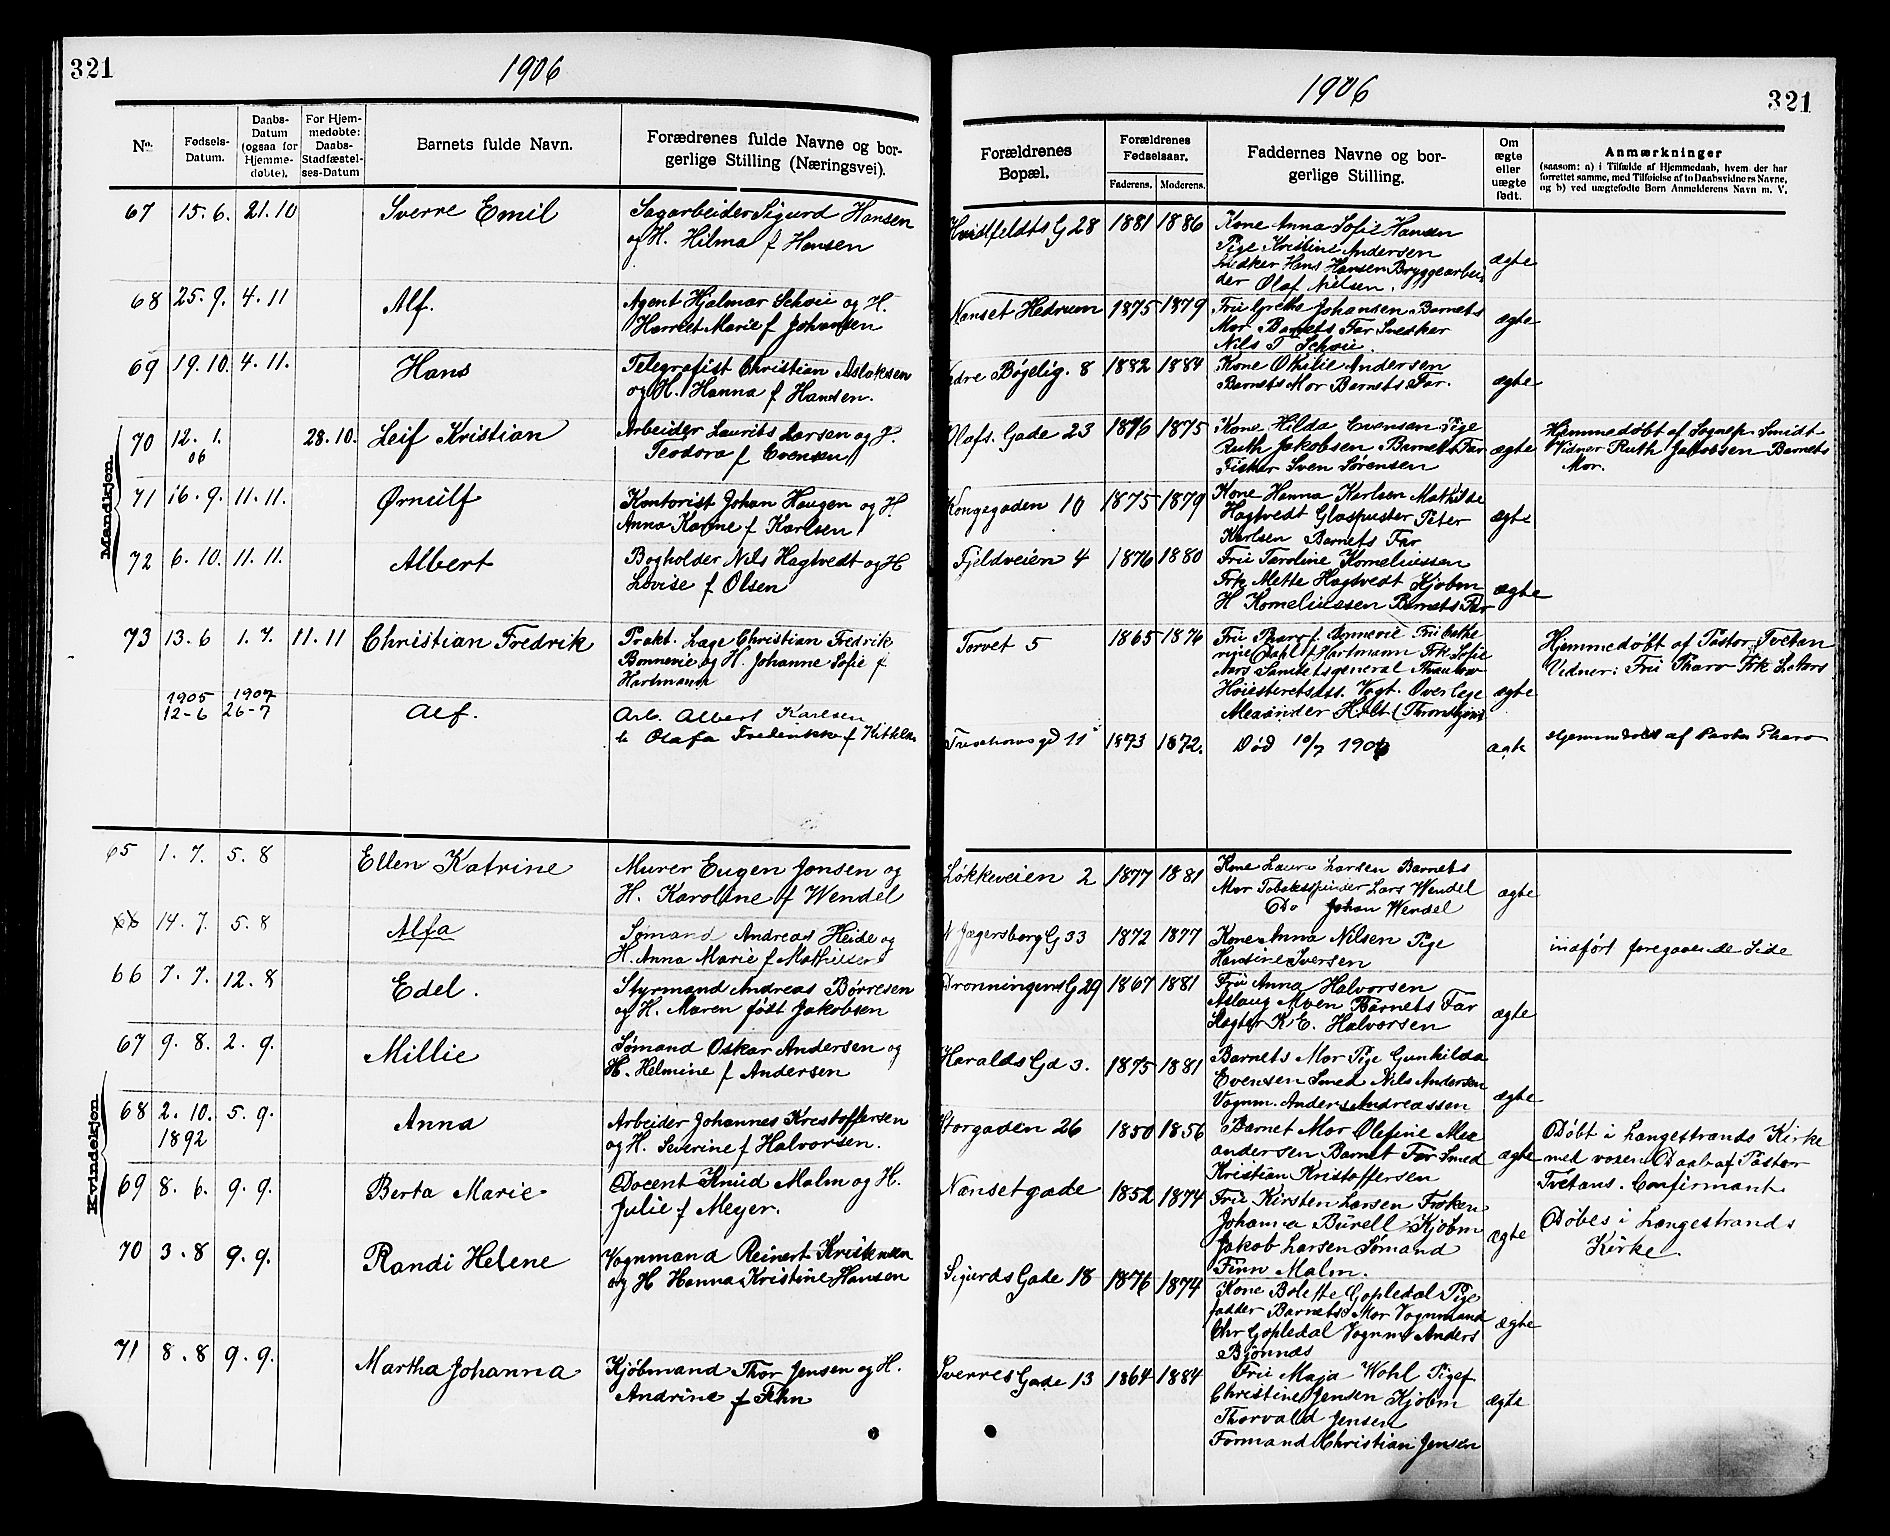 321
1906
No.
Fødsels-
Datum.
Daabs-
Datum
(ogsaa for
Hjemme-
døbte).
For Hjem-
medøbte:
Daabs-
Stadfæstel-
ses-Datum
Barnets fulde Navn.
Forædrenes fulde Navne og bor-
gerlige Stilling (Næringsvei).
Mandkjøn.
67 15. 6. 21. 10 Sverre Emil Sagarbeider Sigurd Hansen
og H. Hilma f Hansen
68 25. 9. 4. 11 Alf. Agent Hjalmar Schøie og H.
Harriet Marie f Johansen
69 19. 10. 4. 11. Hans Telegrafist Christian Aslaksen
og H. Hanna f Hansen.
70 12. 1. 28. 10. Leif Kristian Arbeider Laurits Larsen og H.
06 Teodora f Evensen
71 16. 9. 11. 11. Ørnulf Kontorist Johan Haugen og H.
Anna Karine f Karlsen
72 6. 10. 11. 11. Albert Bogholder Nils Hagtvedt og H
Lovise f Olsen
73 13. 6 1. 7. 11. 11 Christian Fredrik Prakt. Læge Christian Fredrik
Bonnevie og H. Johanne Sofie f
Hartmann
1905 1907
12-6 26-7 Alf. Arb. Albert Karlsen
Olafa Fredrikke f
Kvindekjøn.
65 1. 7. 5. 8 Ellen Katrine Murer Eugen Jonsen og
H. Karoline f Wendel
66 14. 7. 5. 8 Alfa Sømand Andreas Heide og
H. Anna Marie f Mathisen
66 7. 7. 12. 8 Edel. Styrmand Andreas Børresen
og H. Maren født Jakobsen
67 9. 8. 2. 9. Millie Sømand Oskar Andersen og
H. Helmine f Andersen
68 2. 10. 5. 9. Anna Arbeider Johannes Kristoffersen
1892 og H. Severine f Halvorsen.
69 8. 6. 9. 9. Berta Marie Docent Knud Malm og H.
Julie f Meyer.
70 3. 8 9. 9. Randi Helene Vognmand Reinert Kristensen
og H Hanna Kristine Hansen
71 8. 8 9. 9. Martha Johanna Kjøbmand Thor Jensen og H.
Andrine f Fehn
1906
321
Forældrenes
Bopæl.
Forældrenes
Fødselsaar.
Faderens. Moderens.
Faddernes Navne og bor-
gerlige Stilling.
Om
ægte
eller
uægte
født.
Anmærkninger
(saasom: a) i Tilfælde af Hjemmedaab, hvem der har
forrettet samme, med Tilføielse af to Daabsvidners Navne,
og b) ved uægtefødte Børn Anmelderens Navn m. V.
Hvidtfeldts G 28 1881 1886 Kone Anna Sofie Hansen
Pige Kristine Andersen
Snedker Hans Hansen Bryggearbei-
der Olaf Nielsen. ægte
Nanset Hedrum 1875 1879 Fru Grethe Johansen Barnets
Mor Barnets Far Snedker
Nils T Schøie. ægte
Nedre Bøjelig. 8 1882 1884 Kone Othilie Andersen
Barnets Mor Barnets Far. ægte
Olafs. Gade 23 1876 1875 Kone Hilda Evensen Pige
Ruth Jakobsen Barnets Far
Fisker Sven Sørensen ægte
Hjemmedøbt af Sognep. Smidt
Vidner Ruth Jakobsen Barnets
Mor.
Kongegaden 10 1875 1879 Kone Hanna Karlsen Mathilde
Hagtvedt Glaspuster Peter
Karlsen Barnets Far ægte
Fjeldveien 4 1876 1880 Fru Taroline Korneliussen
Frk Mette Hagtvedt Kjøbm
H Korneliussen Barnets Far ægte
Torvet 5 1865 1876 Fru Tharo f. Bonnevie Fru Kathe-
rine Dahl f Hartmann Frk Sofie
Aars Sanitetsgeneral Thaulow
Høiesteretsass. Vogt. Overlæge
Alexander Holst (Thronhjem) ægte
Hjemmedøbt af Pastor Tvetan
Vidner: Fru Tharo Frk S. Aars
gd 11 1873 1872. Død 10/7 1906 ægte Hjemmedøbt af Pastor Tharo
Løkkeveien 2 1877 1881 Kone Laura Larsen Barnets
Mor Tobaksspinder Lars Wendel
Do Johan Wendel ægte
N Jægersborg G 33 1872 1877 Kone Anna Nilsen Pige
Hansine Iversen indført foregaaende Side
Dronningens G 29 1867 1881 Fru Anna Halvorsen
Aslaug Moen Barnets Far
Slagter K E. Halvorsen ægte
Haralds Gd 3. 1875 1881 Barnets Mor Pige Gunhilda
Evensen Smed Nils Andersen
Vognm. Anders Andreassen ægte
Storgaden 26 1850 1856 Barnet Mor Olefine Alex
andersen Barnet Far Smed
Kristian Kristoffersen ægte
Døbt i Langestrands Kirke
med voxen Daab af Pastor
Tvetans. Confirmant
Nansetgade 1852 1874 Fru Kirsten Larsen Frøken
Johanna Burell Kjøbm
Jakob Larsen Sømand
Finn Malm. ægte
Døbes i Langestrands
Kirke
Sigurds Gade 18 1876 1874 Kone Bolette Gopledal Pige
fadder Barnets Mor Vognmand
Chr Gopledal Vognm Anders
Bjønnes ægte
Sverres Gade 13 1864 1884 Fru Maja Wohl Pigef
Christine Jensen Kjøbm
Thorvald Jensen
Formand Christian Jensen ægte